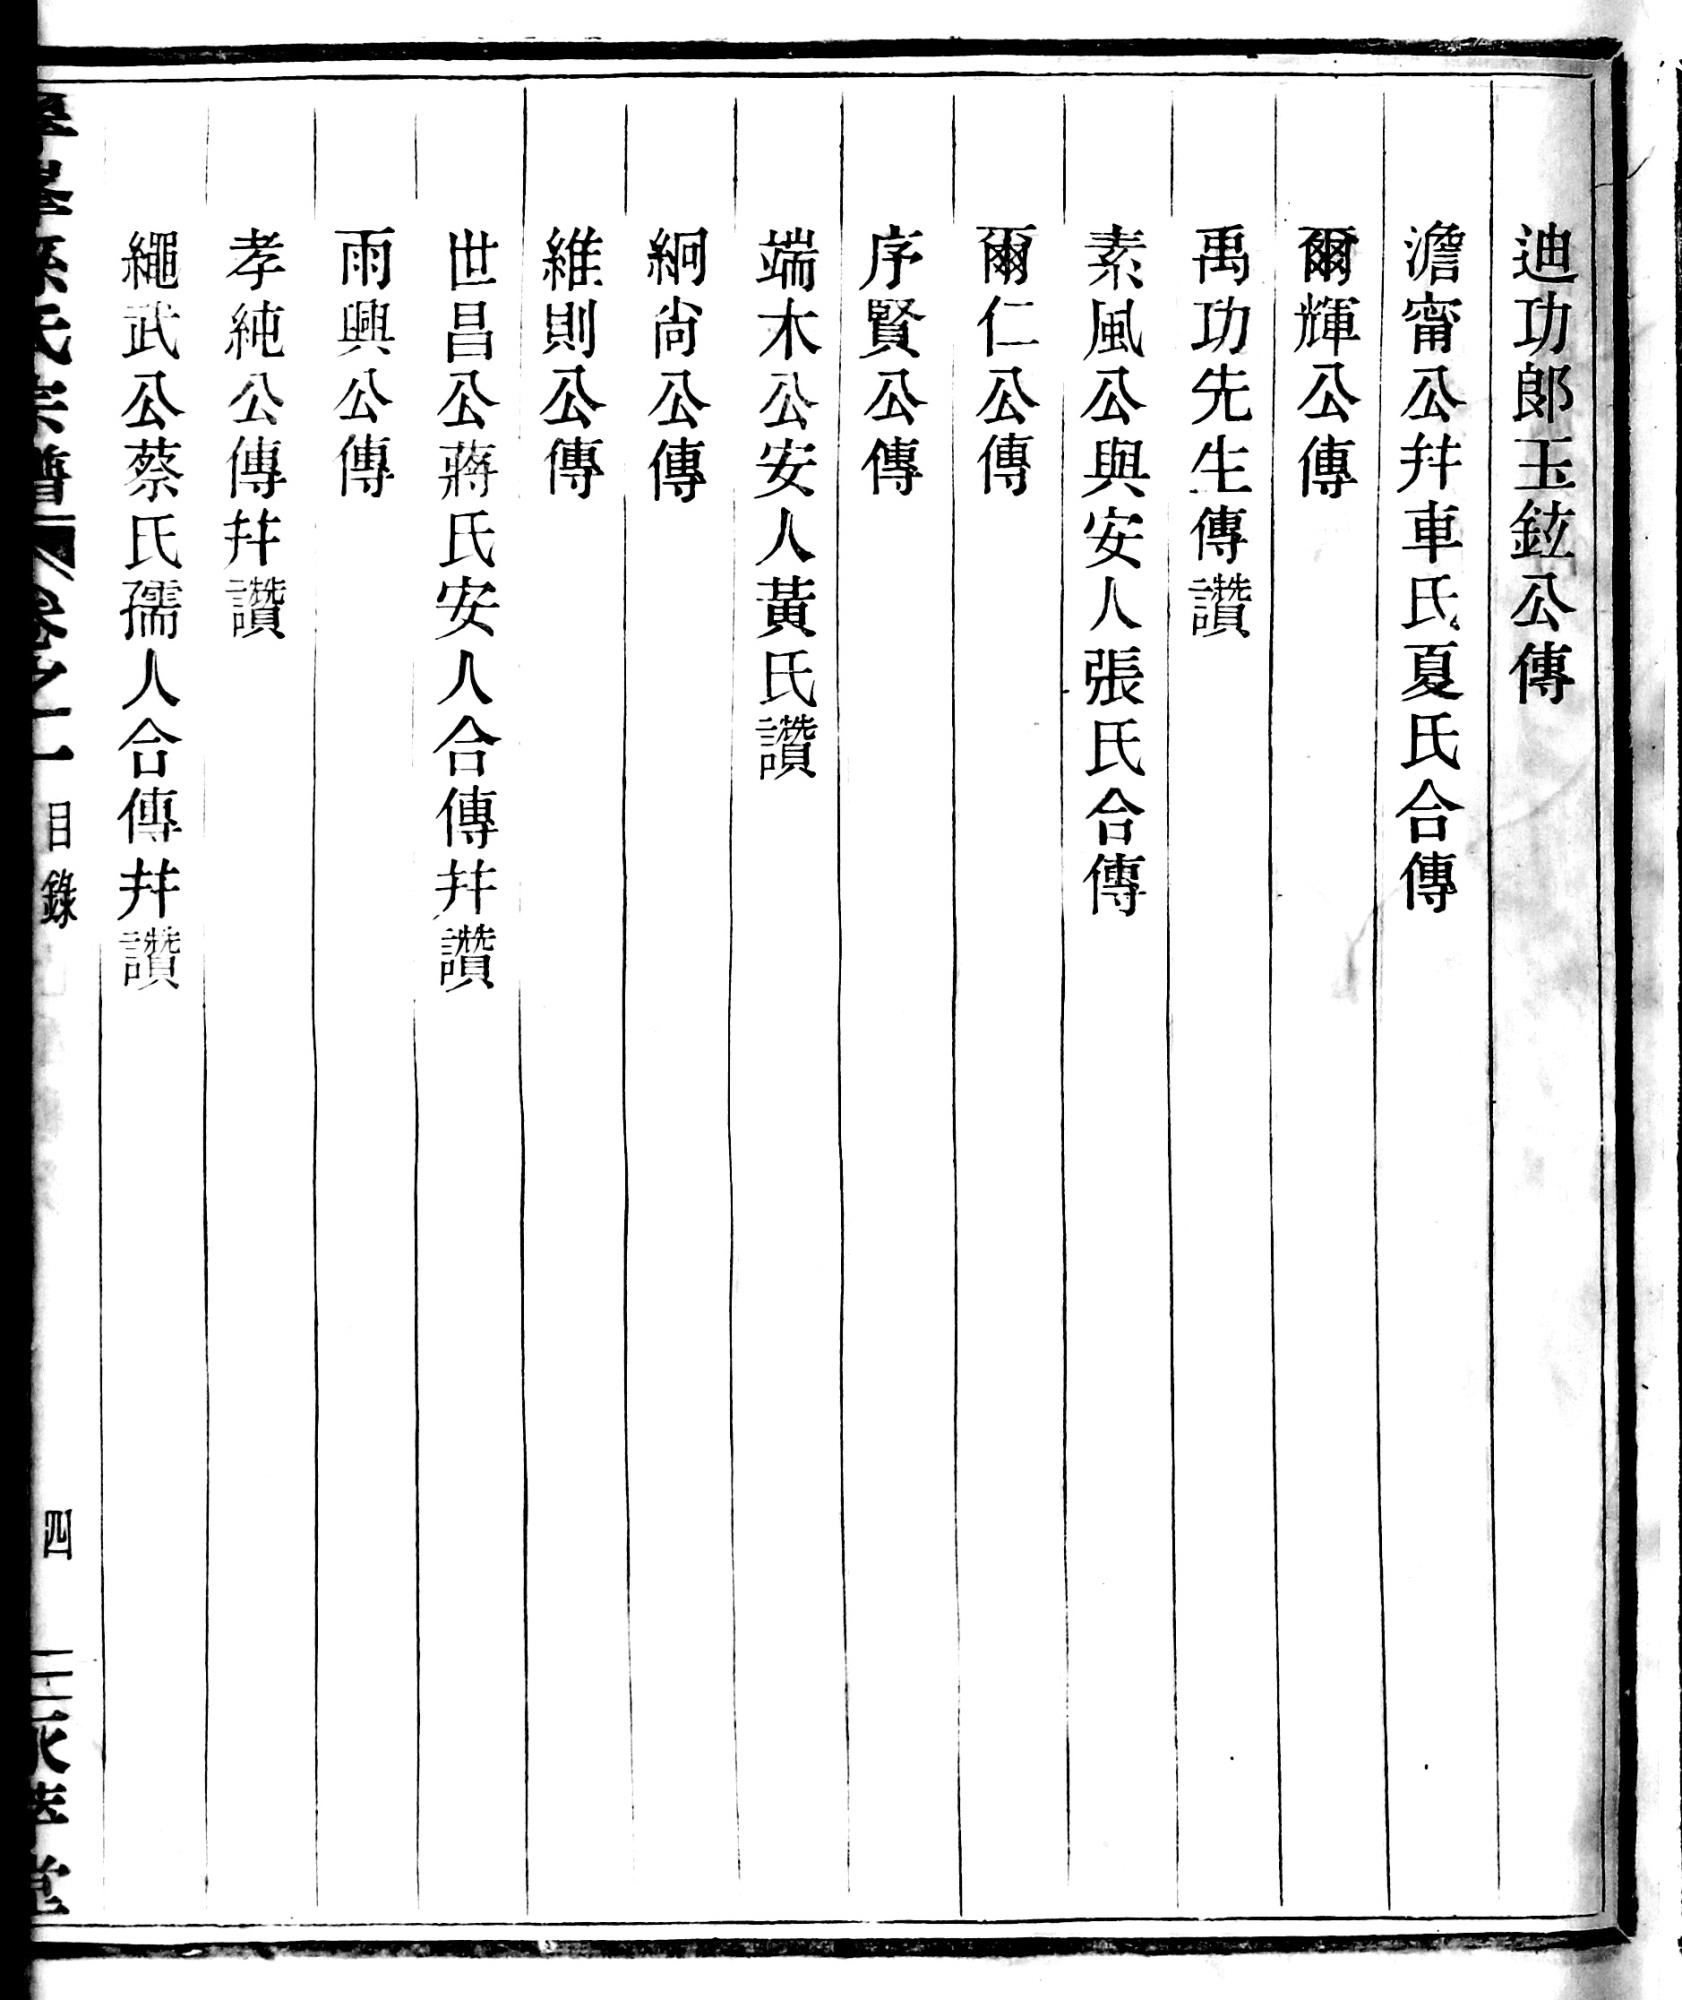 迪功郎玉鉉公傳
澹甯公幷車氏夏氏合傳
爾輝公傳
禹功先生傳讚
素風公與安人張氏合傳
爾仁公傳
序賢公傳
端木公安人黃氏讚
絅尙公傳
維則公傳
世昌公蔣氏安人合傳幷讚
雨興公傳
孝純公傳幷讚
繩武公蔡氏孺人合傳幷讚
氏宗譜 卷之一 目錄 四 堂